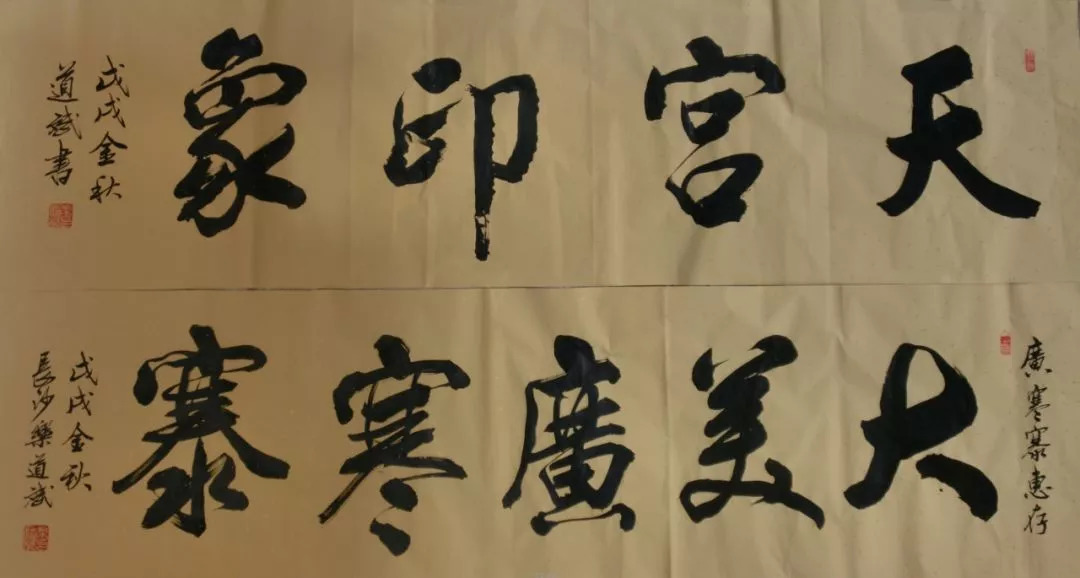 天宫印象
戊戌金秋
道斌書
廣寒寨惠存
大美廣寒寨
戊戌金秋
長沙樂道斌